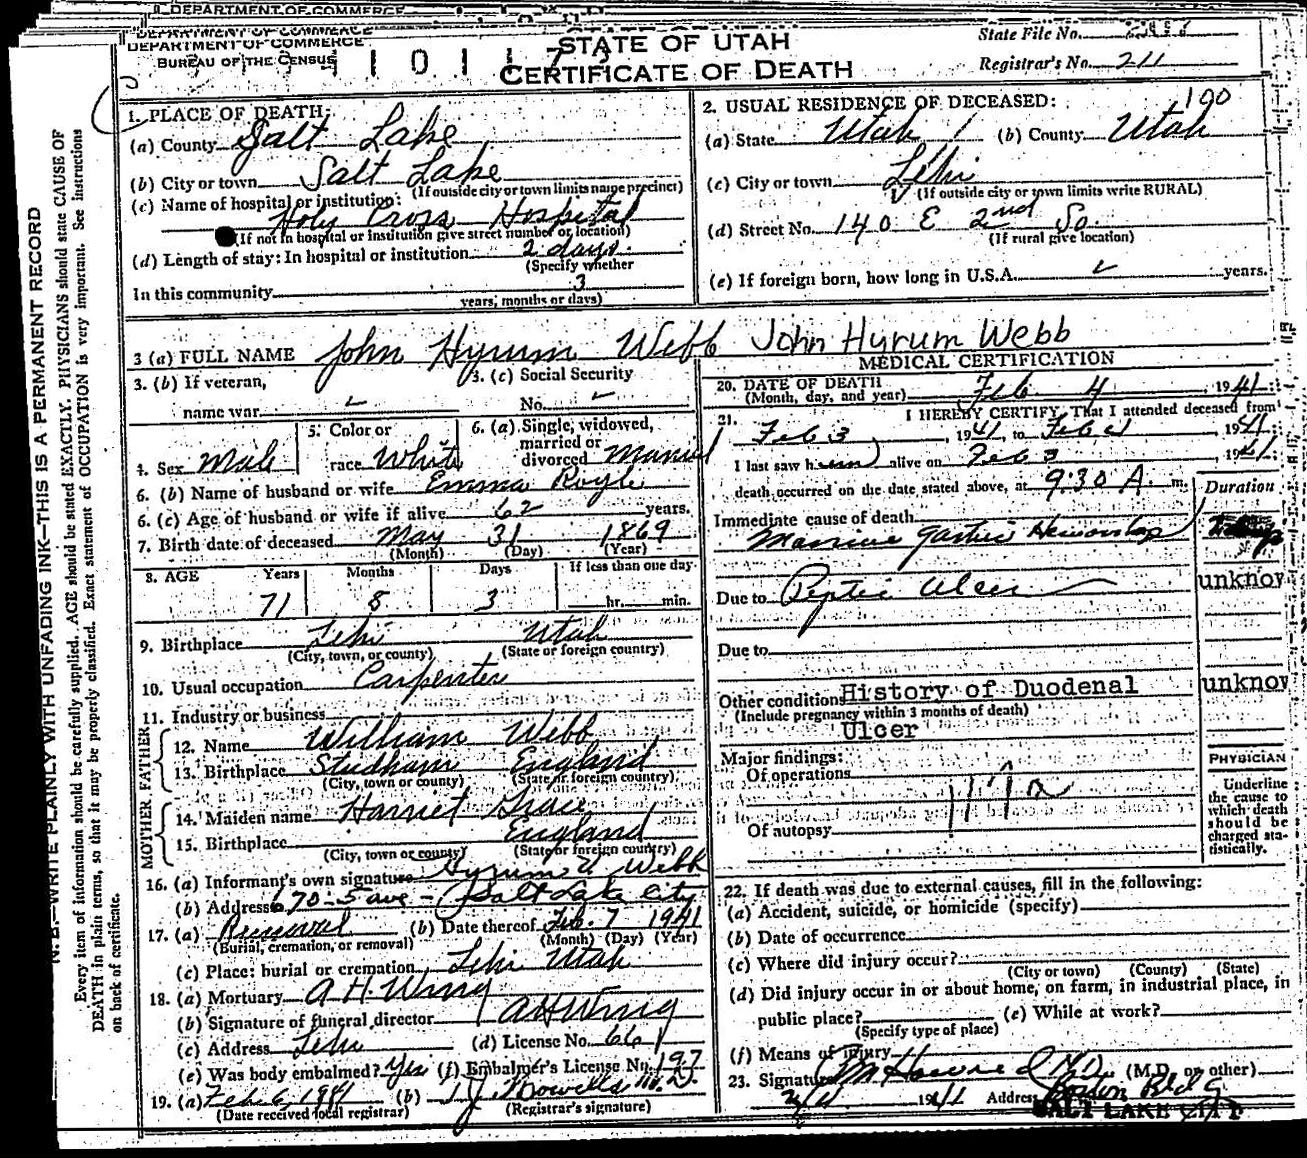 DEPARTMENT OF COMMERCE
DEPARTMENT OF COMMERCE
BUREAU OF THE CENSUS
STATE OF UTAH
CERTIFICATE OF DEATH
State File No.
Registrar's No. 211
1. PLACE OF DEATH:
(a) County Salt Lake
(b) City or town Salt Lake
(If outside city or town limits name precinct)
(c) Name of hospital or institution:
Holy Cross Hospital
(If not in hospital or institution give street number or location)
(d) Length of stay: In hospital or institution 2 days
(Specify whether
In this community 3
years, months or days)
2. USUAL RESIDENCE OF DECEASED: 190
(a) State Utah (b) County Utah
(c) City or town Lehi
(If outside city or town limits write RURAL)
(d) Street No. 140 E 2nd So.
(If rural give location)
(e) If foreign born, how long in U.S.A. years.
3 (a) FULL NAME John Hyrum Webb John Hyrum Webb
3. (b) If veteran, 3. (c) Social Security
name war No.
4. Sex Male 5. Color or race White 6. (a) Single, widowed, married or divorced Married
6. (b) Name of husband or wife Emma Royle
6. (c) Age of husband or wife if alive 62 years.
7. Birth date of deceased May 31 1869
(Month) (Day) (Year)
8. AGE Years Months Days If less than one day
71 8 3 hr. min.
9. Birthplace Lehi Utah
(City, town, or county) (State or foreign country)
10. Usual occupation Carpenter
11. Industry or business
FATHER
12. Name William Webb
13. Birthplace Studham England
(City, town or county) (State or foreign country)
MOTHER
14. Maiden name Harriet Grace
15. Birthplace England
(City, town or county) (State or foreign country)
16. (a) Informant's own signature Hyrum Webb
(b) Address 670-5 ave - Salt Lake City
17. (a) Removal (b) Date thereof Feb. 7 1941
(Burial, cremation, or removal) (Month) (Day) (Year)
(c) Place: burial or cremation Lehi Utah
18. (a) Mortuary A H. Wing
(b) Signature of funeral director A H Wing
(c) Address Lehi (d) License No. 661
(e) Was body embalmed? Yes (f) Embalmer's License No. 197
19. (a) Feb 6, 1941 (b) M.D.
(Date received local registrar) (Registrar's signature)
MEDICAL CERTIFICATION
20. DATE OF DEATH
(Month, day, and year) Feb 4, 1941
21. I HEREBY CERTIFY, That I attended deceased from
Feb 3, 1941, to Feb 4 1941
I last saw him alive on Feb 3 1941
death occurred on the date stated above, at 9:30 A. m.
Duration
Immediate cause of death
Massive Gastric Hemorrhage
Due to Peptic Ulcer unknow
Due to
Other conditions History of Duodenal unknow
(Include pregnancy within 3 months of death)
Ulcer
Major findings:
Of operations
117a
Of autopsy
PHYSICIAN
Underline
the cause to
which death
should be
charged sta-
tistically.
22. If death was due to external causes, fill in the following:
(a) Accident, suicide, or homicide (specify)
(b) Date of occurrence
(c) Where did injury occur?
(City or town) (County) (State)
(d) Did injury occur in or about home, on farm, in industrial place, in
public place? (e) While at work?
(Specify type of place)
(f) Means of injury
23. Signature M.D. (M.D. or other)
2/4 1941 Address Boston Bldg
SALT LAKE CITY
N. B.—WRITE PLAINLY WITH UNFADING INK—THIS IS A PERMANENT RECORD
Every item of information should be carefully supplied. AGE should be stated EXACTLY. PHYSICIANS should state CAUSE OF
DEATH in plain terms, so that it may be properly classified. Exact statement of OCCUPATION is very important. See instructions
on back of certificate.